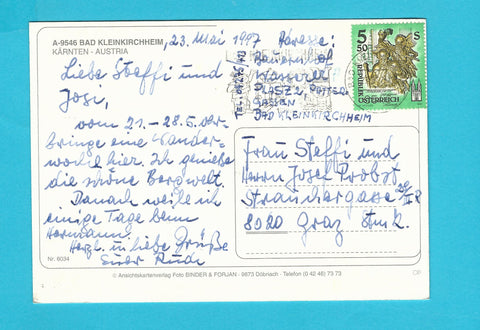 A-9546 BAD KLEINKIRCHHEIM,
KÄRNTEN - AUSTRIA
23. Mai 1997
Liebe Steffi und
Josi,
vom 21. - 28.5. ver-
bringe eine Wander-
woche hier. Ich genieße
die schöne Bergwelt.
Danach weile ich
einige Tage beim
Hermann.
Herzl. u. liebe Grüße
Euer Rudi
Adresse:
Bauernhof
BAD KLEINKIRCHHEIM
5 50 S
REPUBLIK
ÖSTERREICH
Frau Steffi und
Herrn Josef Probst
8020 Graz Stmk.
Nr. 6034
© Ansichtskartenverlag Foto BINDER & FORJAN - 9873 Döbriach - Telefon (0 42 46) 73 73